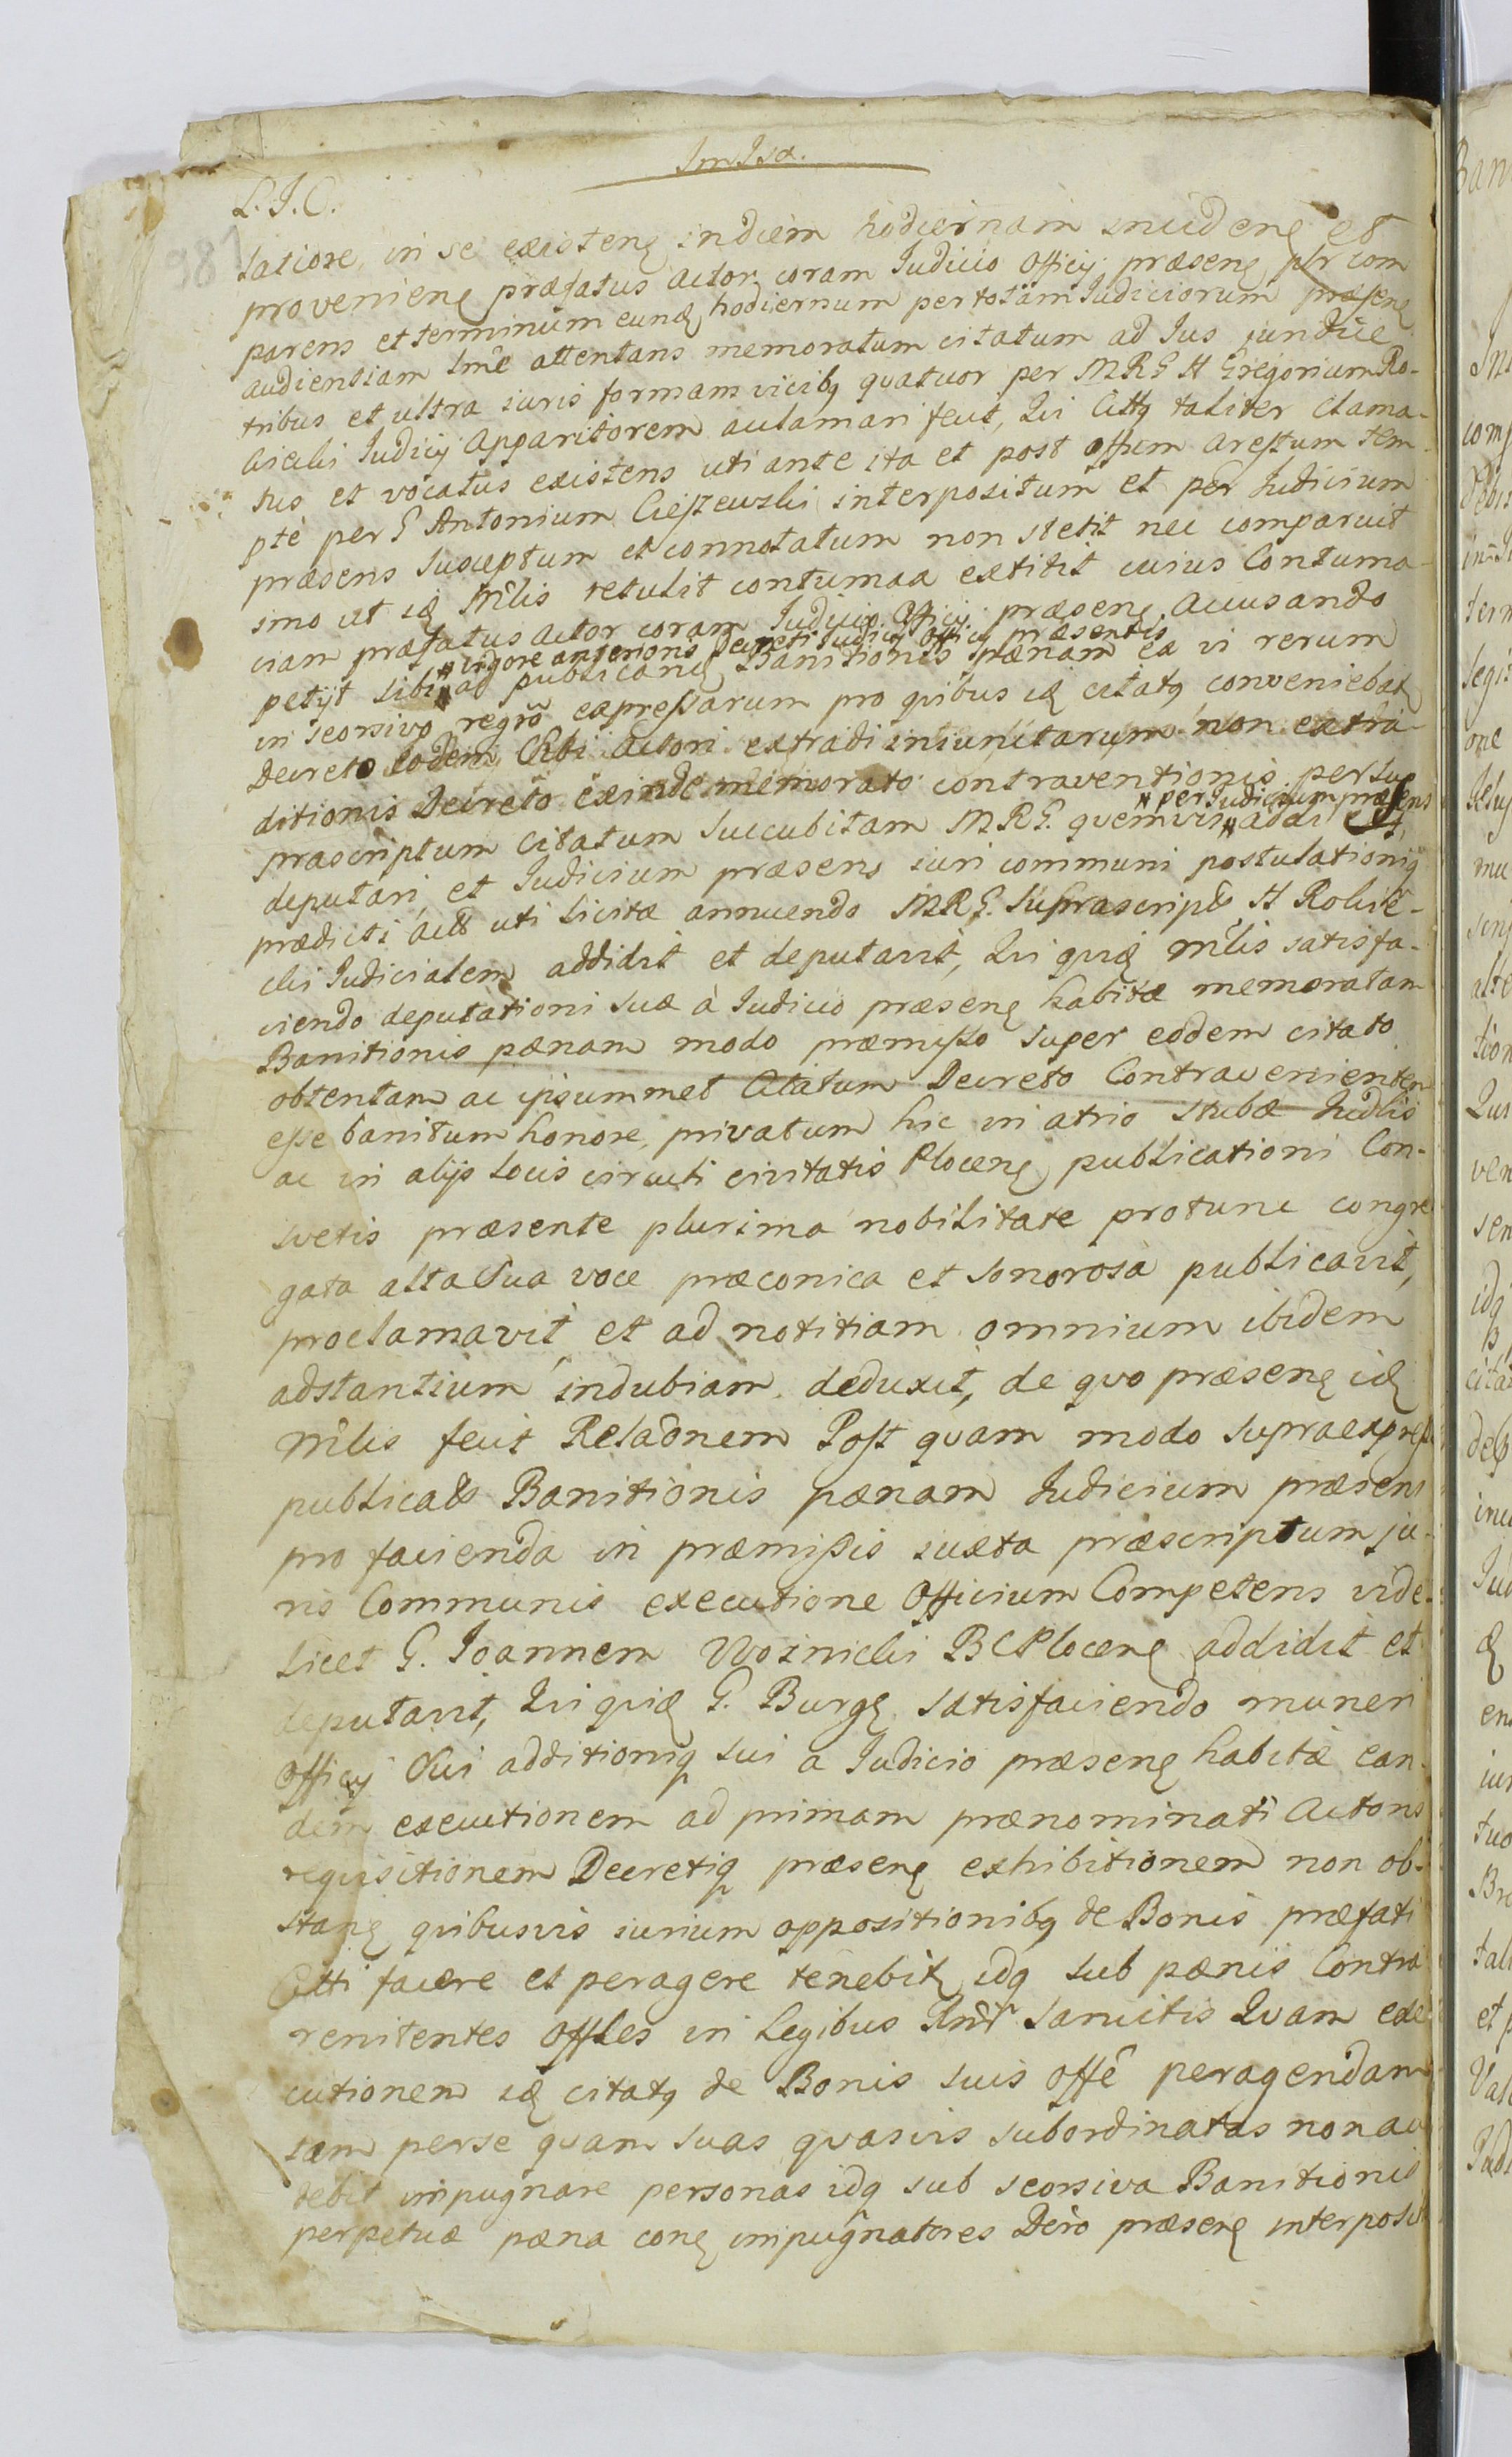 L. J. C.
latione in se existenȩ in diem hodiernam incidenȩ et
provenienȩ præfatus Actor coram Iudicio Officij præsenȩ plr com
parens et terminum eund hodiernum per totam Iudiciorum præsenȩ
audientiam lmê attentans memoratum citatum ad Ius iuridice
tribus et ultra iuris formam vicibq quatuor per MRG H Gregorium Ro-
Iudicij Apparitorem aclamari fecit, Qui Cittq taliter clama-
tus et vocatus existens uti ante ita et post Arestum tem
pte per G Antonium Cieszewski interpositum et per Iudicium
præsens susceptum et connotatum non stetit nec comparuit
imo ut id Mlis retulit contumax extitit cuius Contuma-
ciam præfatus Actor coram Iudicio Officij præsenȩ Accusando
vigore anterioris Decreti Iudicij Officij præsentis
petijt sibi ad publicanȩ Banitionis pænam ex vi rerum
in seorsivo regrô expressarum pro quibus id citatq conveniebat
Decreto eodem Actori extradi iniunctarum non extra-
ditionis Decreto exinde memorato contraventionis per su
per Iudicium præsens
præscriptum citatum succubitam MRG. quemvis addi
deputari, et Iudicium præsens iuri communi postulationiq
prædicti uti licitæ annuendo MRG. supra script H Rolire-
cki Iudicialem addidit et deputavit, Qui quid Mlis satisfa-
ciendo deputationi suæ à Iudicio præsenȩ habitæ memoratam
Banitionis pænam modo præmisso super eodem citato
obtentam ac ipsummet Citatum Decreto Contravenienten
esse banitum honore, privatum hic in atrio stubæ Iudlis
ac in alijs locis circuti civitatis Plocenȩ publicationi Con-
svetis præsente plurima nobilitate protunc congre
gata alta sua voce præconica et sonorosa publicavit,
proclamavit, et ad notitiam omnium ibidem
adstantium indubiam deduxit, de quo præsenȩ id
Mlis fecit Relaõnem Post quam modo supraexpress
publicata Banitionis pænam Iudicium præsens
pro facienda in præmissis iuxta præscriptum ju-
ris Communis executione Officium Competens vide-
licet G. Ioannem Woznicki BCPlocenȩ addidit et
deputavit, Qui quid G. Burgȩ satisfaciendo muneri
Officij sui additioniq sui a Iudicio præsenȩ habitæ ean-
dem executionem ad primam prænominati Actoris
requisitionem Decretiq præsenȩ exhibitionem non ob-
stanȩ quibusvis iurium oppositionibq de Bonis præfati
Citti facere et peragere tenebit idq sub pænis Contra
renitentes Offles in Legibus sancitis Quam exe
cutionem id citatq de Bonis suis Offê peragendam
tam perse quam suas quasvis subordinatas non au
debit impugnare personas idq sub seorsiva Banitionis
perpetuæ pæna conȩ impugnatores Dcro præsenȩ interposit